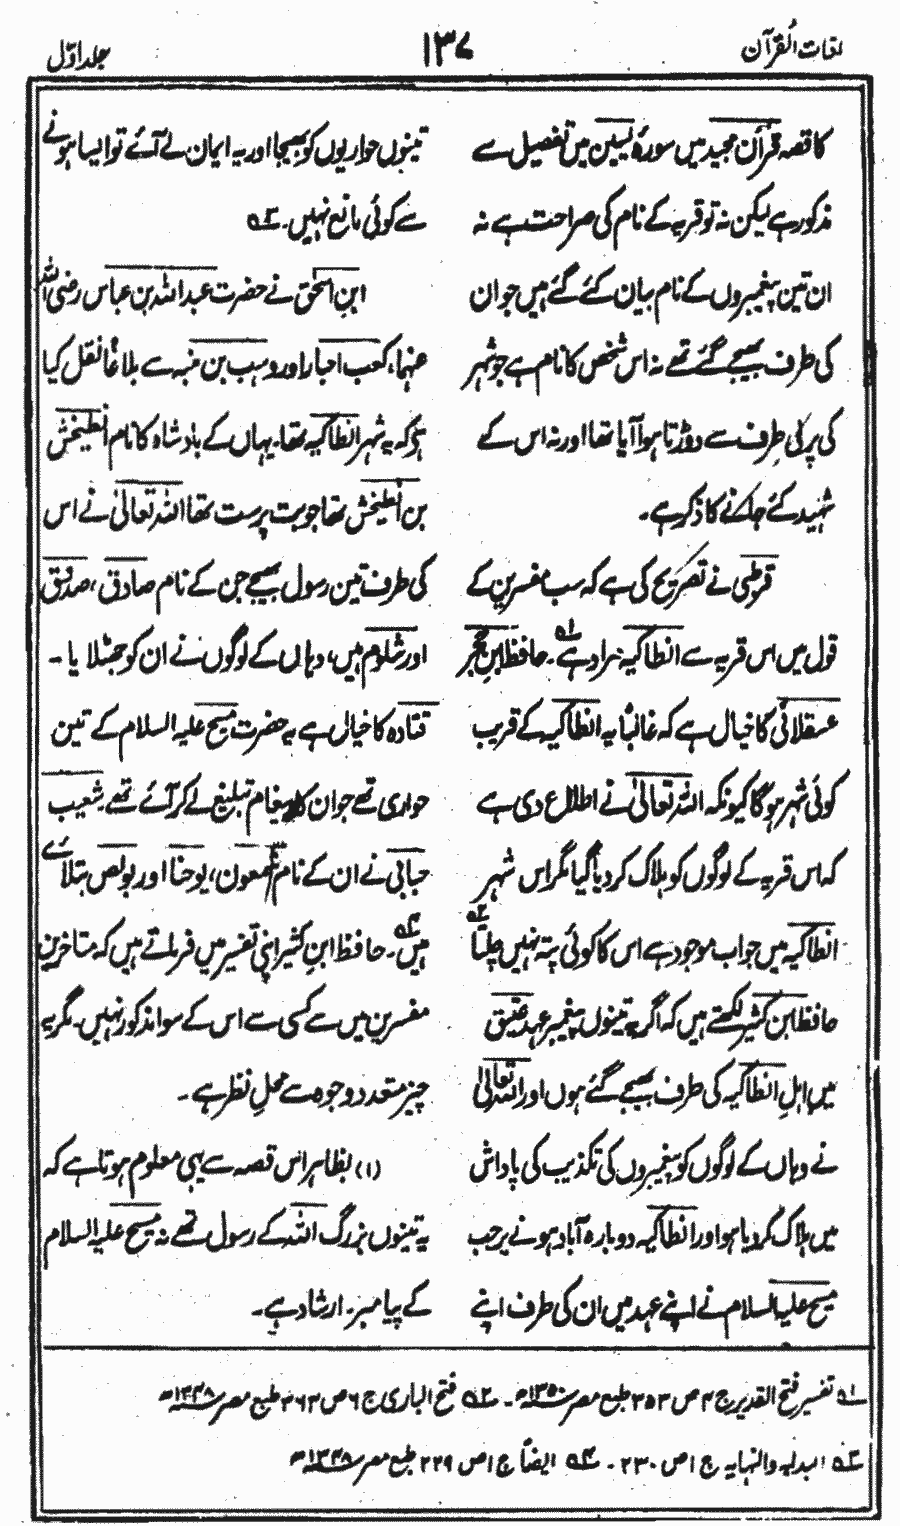 لغات القرآن
۱۳۷
جلد اوّل
کا قصہ قرآن مجید میں سورۂ یٰسین میں تفصیل سے
مذکور ہے لیکن نہ تو قریہ کے نام کی صراحت ہے نہ
ان تین پیغمبروں کے نام بیان کئے گئے ہیں جو ان
کی طرف بھیجے گئے تھے نہ اس شخص کا نام ہے جو شہر
کی پرلی طرف سے دوڑتا ہوا آیا تھا اور نہ اس کے
شہید کئے جانے کا ذکر ہے۔
قرطبی نے تصریح کی ہے کہ سب مفسرین کے
قول میں اس قریہ سے انطاکیہ مراد ہے لہ۔ حافظ ابن حجر
عسقلانی کا خیال ہے کہ غالبًا یہ انطاکیہ کے قریب
کوئی شہر ہوگا کیونکہ اللہ تعالیٰ نے اطلاع دی ہے
کہ اس قریہ کے لوگوں کو ہلاک کر دیا گیا مگر اس شہر
انطاکیہ میں جو اب موجود ہے اس کا کوئی پتہ نہیں چلتا ۲ہ
حافظ ابن کثیر لکھتے ہیں کہ اگر یہ تینوں پیغمبر عہد عتیق
میں اہلِ انطاکیہ کی طرف بھیجے گئے ہوں اور اللہ تعالیٰ
نے وہاں کے لوگوں کو پیغمبروں کی تکذیب کی پاداش
میں ہلاک کر دیا ہو اور انطاکیہ دوبارہ آباد ہونے پر جب
مسیح علیہ السلام نے اپنے عہد میں ان کی طرف اپنے
تینوں حواریوں کو بھیجا اور یہ ایمان لے آئے تو ایسا ہونے
سے کوئی مانع نہیں۔ ۳ہ
ابنِ اسحٰق نے حضرت عبد اللہ بن عباس رضی اللہ
عنہما، کعب احبار اور وہب بن منبہ سے بلاغًا نقل کیا
ہے کہ یہ شہر انطاکیہ تھا۔ یہاں کے بادشاہ کا نام انطیخش
بن انطیخش تھا جو بت پرست تھا اللہ تعالیٰ نے اس
کی طرف تین رسول بھیجے جن کے نام صادق، صدوق
اور شلوم ہیں، وہاں کے لوگوں نے ان کو جھٹلا یا ۔
قتادہ کا خیال ہے یہ حضرت مسیح علیہ السلام کے تین
حواری تھے جو ان کا پیغام تبلیغ لے کر آئے تھے۔ شعیب
جبائی نے ان کے نام شمعون، یوحنا اور بولص بتلائے
ہیں ۴ہ۔ حافظ ابنِ کثیر اپنی تفسیر میں فرماتے ہیں کہ متاخرین
مفسرین میں سے کسی سے اس کے سوا مذکور نہیں۔ مگر یہ
چیز متعدد وجوہ سے محلِ نظر ہے ۔
(۱) بظاہر اس قصہ سے یہی معلوم ہوتا ہے کہ
یہ تینوں بزرگ اللہ کے رسول تھے نہ مسیح علیہ السلام
کے پیامبر۔ ارشاد ہے۔
۱ہ تفسیر فتح القدیر ج ۴ ص ۳۵۳ طبع مصر ۱۳۵۰ھ ۔ ۲ہ فتح الباری ج ۶ ص ۳۶۳ طبع مصر ۱۳۴۸ھ
۳ہ البدایہ والنہایہ ج ۱ ص ۲۳۰ ۔ ۴ہ ایضاً ج ۱ ص ۲۲۹ طبع مصر ۱۳۴۸ھ